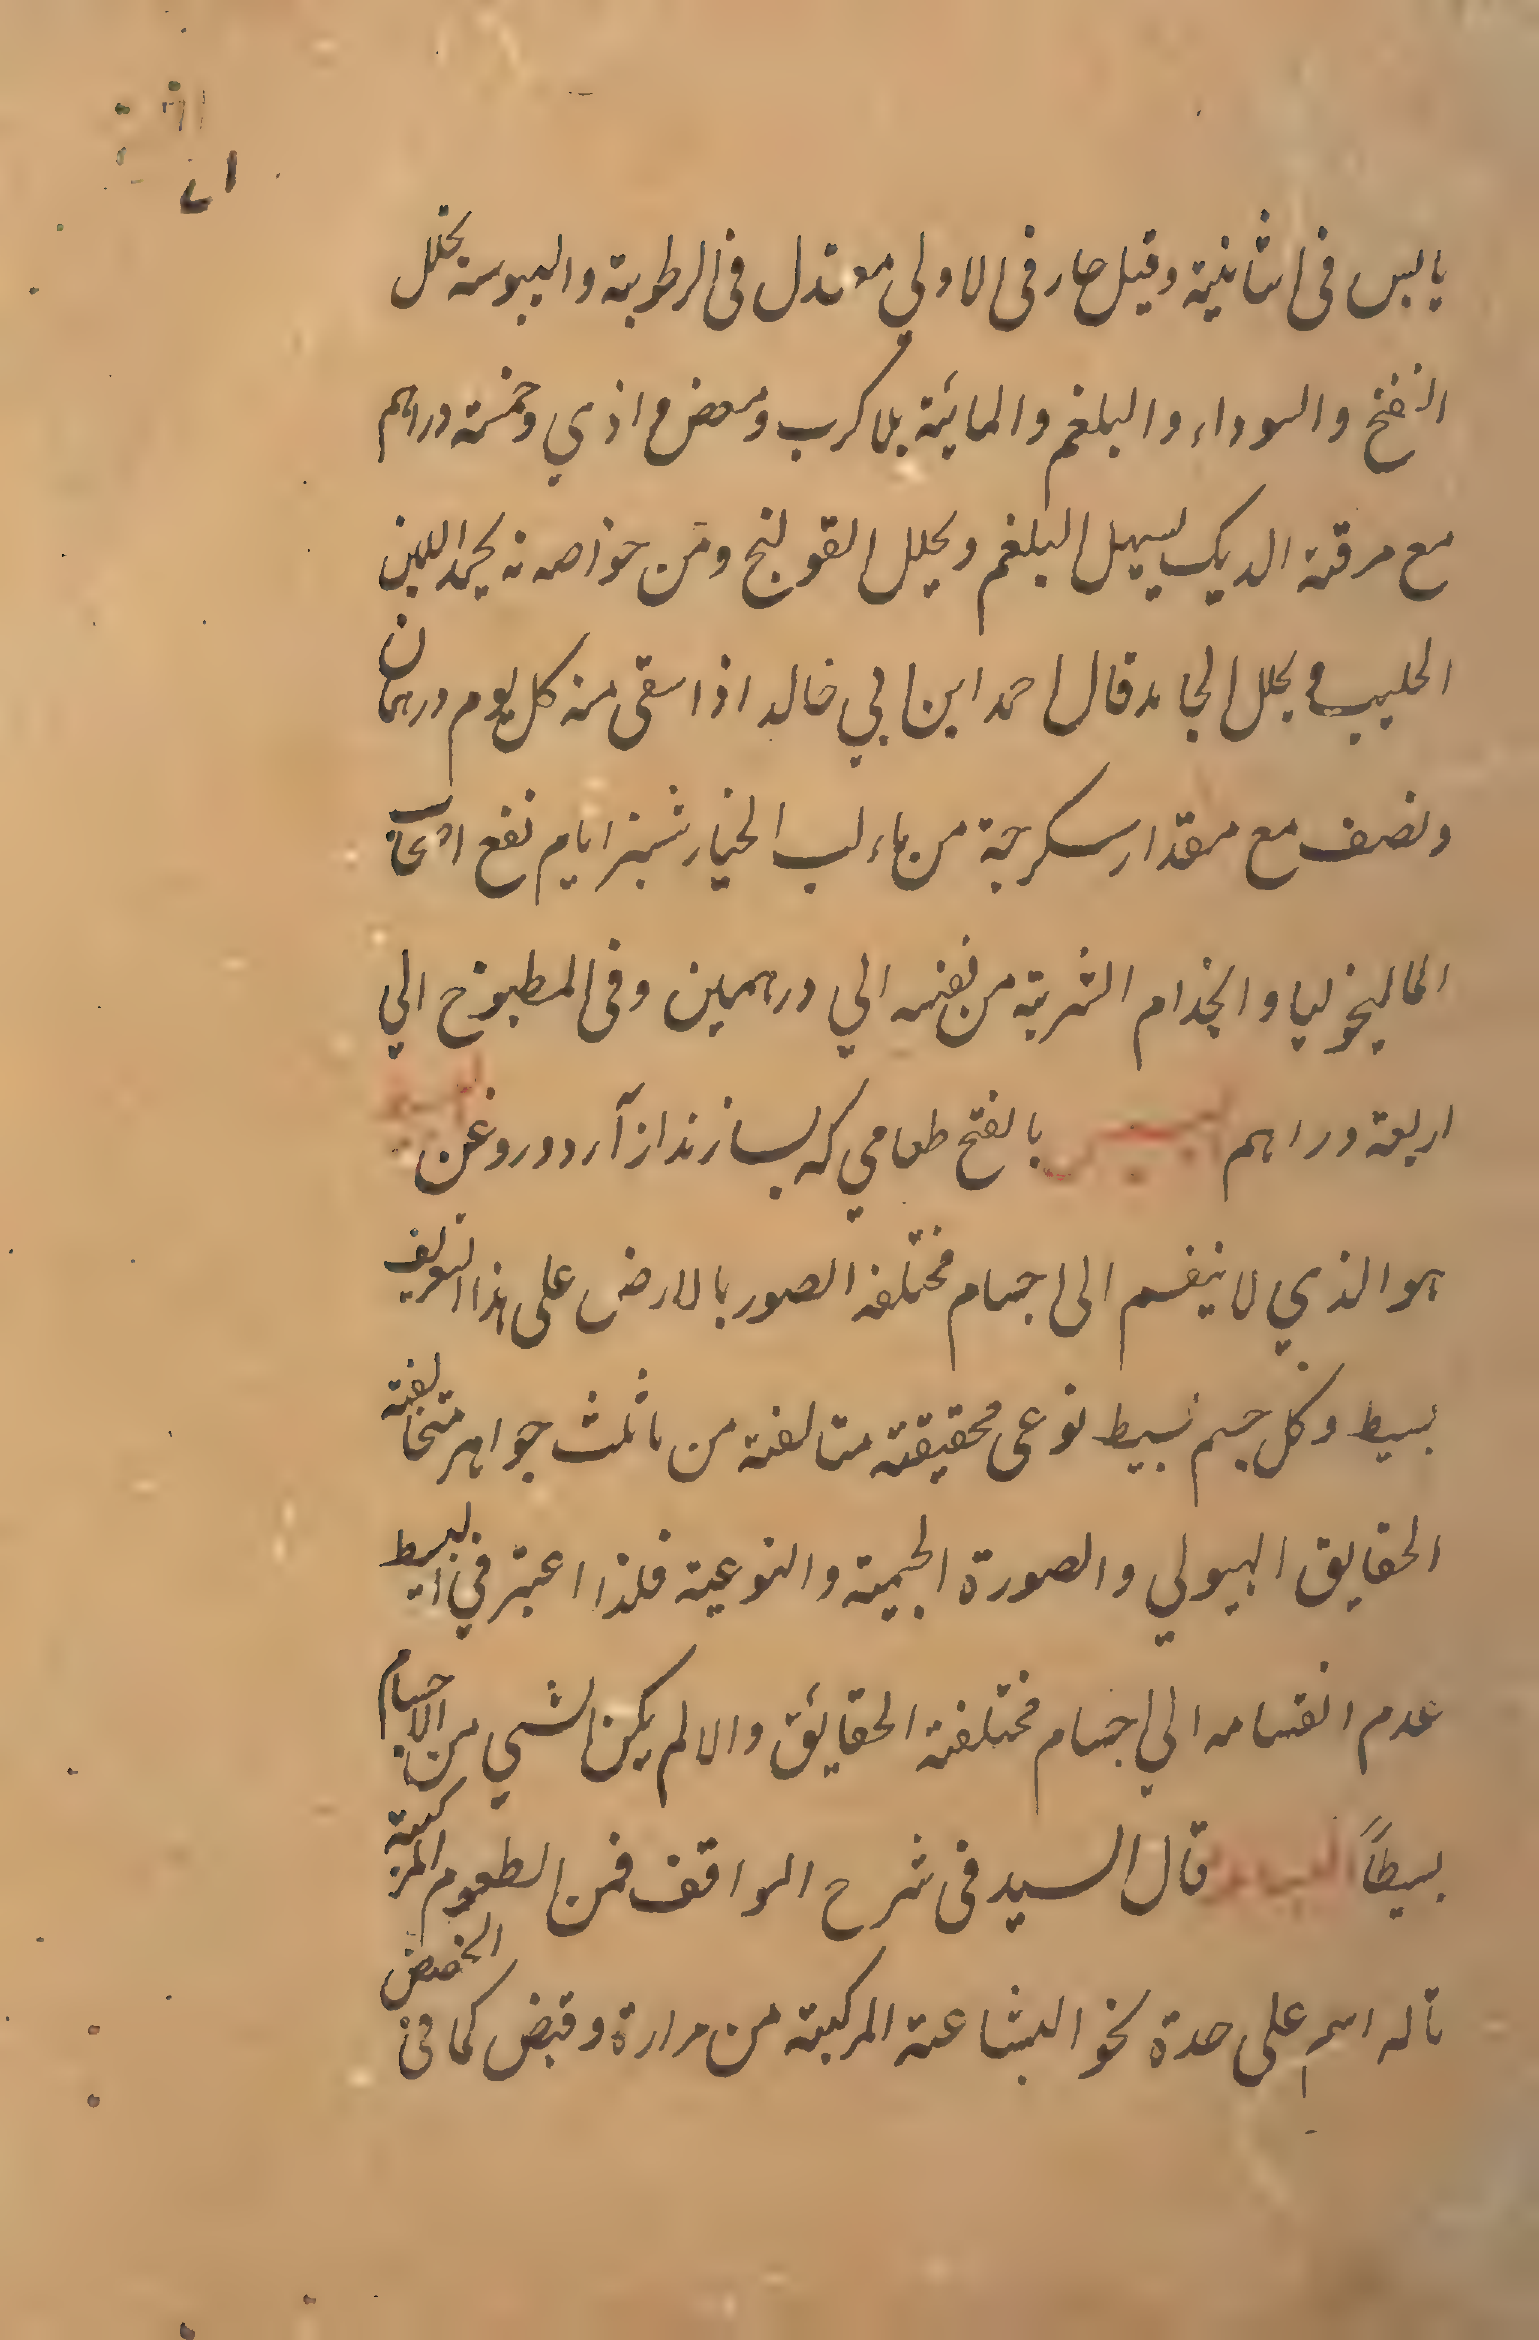 يابس فى الثانية وقيل حار فى الاولي معتدل فى الرطوبة واليبوسة يحلل
النفخ والسوداء والبلغم والمائية بلا كرب ومغص واذي وخمسة دراهم
مع مرقة الديك يسهل البلغم ويحلل القولنج ومن خواصه انه يجمد اللبن
الحليب ويحلل الجامد قال احمد ابن ابي خالد اذا سقى منه كل يوم درهمان
ونصف مع مقدار سكرجة من ماء لب الخيار شنبر ايام نفع اصحاب
الماليخوليا والجذام الشربة من نفسه الي درهمين وفى المطبوخ الي
اربعة دراهم البسيس بالفتح طعامي كه بسازند از آرد وروغن البسيط
هو الذي لا ينقسم الى اجسام مختلفة الصور بالارض على هذا التعريف
بسيط وكل جسم بسيط نوعى محقيقة متالفة من ثلث جواهر متخالفة
الحقايق الهيولي والصورة الجسمية والنوعية فلذا اعتبر في البسيط
عدم انقسامه الي اجسام مختلفة الحقائق والا لم يكن لشي من الاجسام
بسيطاً قال السيد فى شرح المواقف فمن الطعوم المركبة
ماله اسم على حدة نحو البشاعة المركبة من مرارة وقبض كما فى الخضض